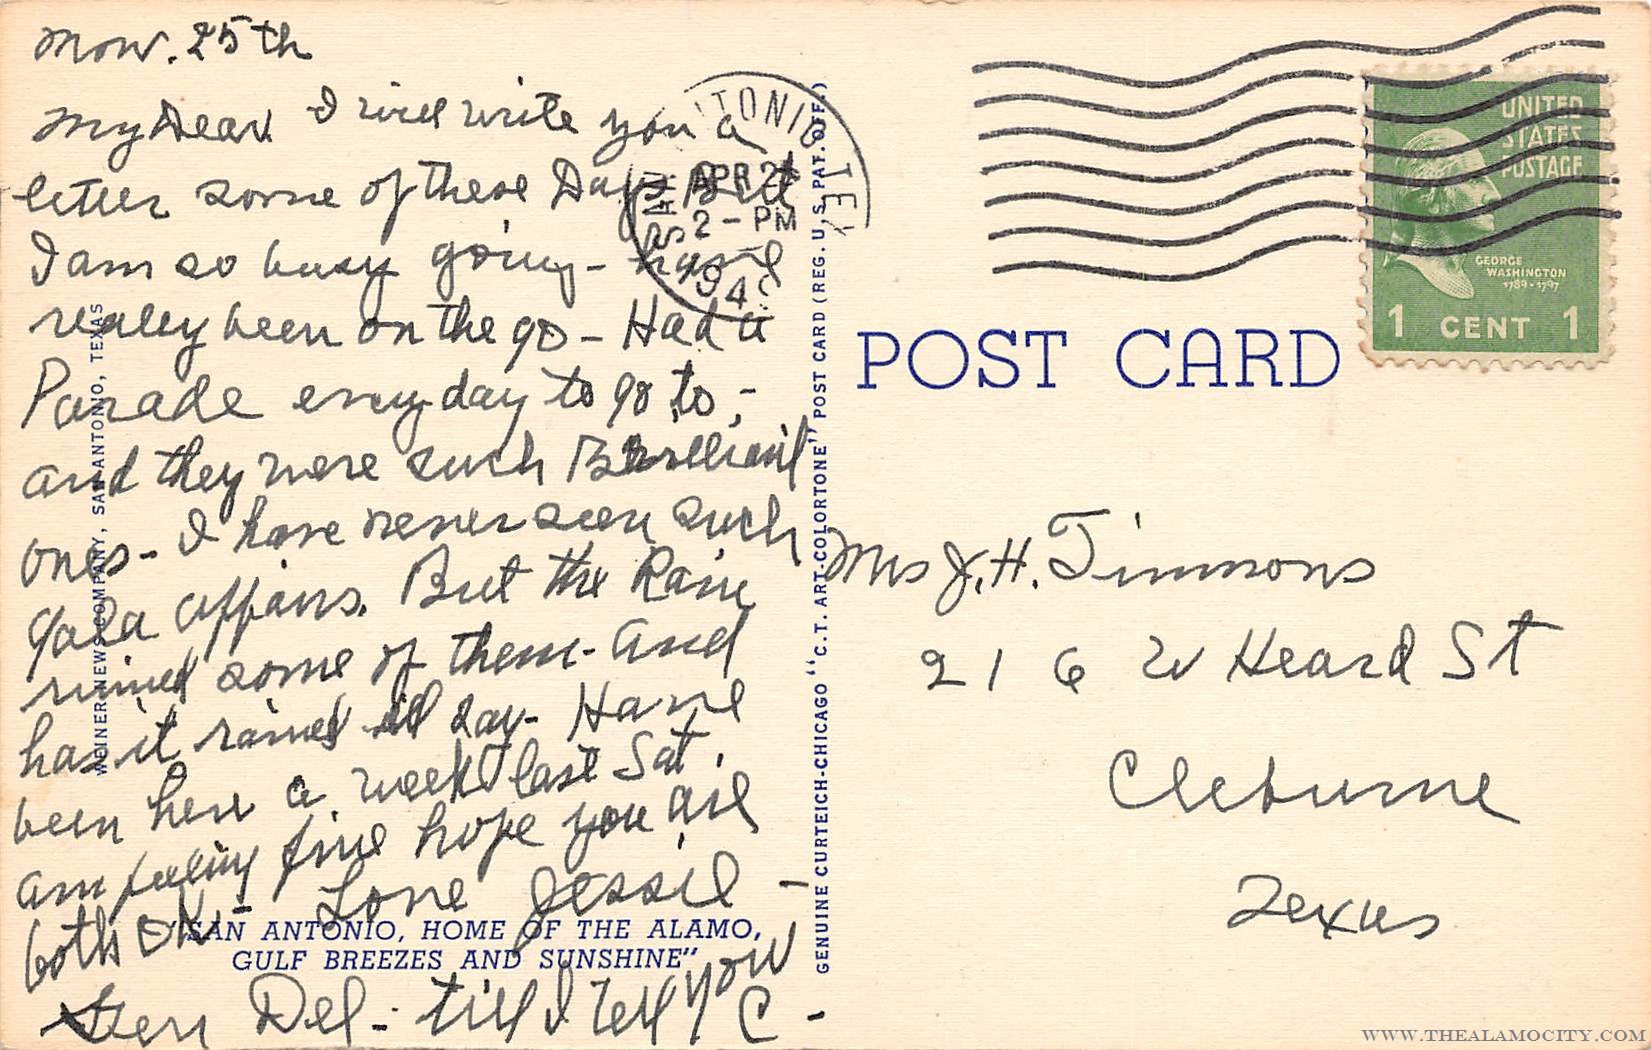 Mon. 25th
My Dear I will write you a
letter some of these Days But
I am so busy going - have
really been on the go - Had a
Parade every day to go to, -
and they were such Brilliant
ones - I have never seen such
gala affairs. But the Rain
ruined some of them - and
has it rained all day - Have
been here a week last Sat.
am feeling fine hope you are
both OK - Love Jessie -
Gen Del - till I tell you
C -
"SAN ANTONIO, HOME OF THE ALAMO,
GULF BREEZES AND SUNSHINE"
WEINER NEWS COMPANY, SAN ANTONIO, TEXAS
GENUINE CURTEICH-CHICAGO "C.T. ART-COLORTONE" POST CARD (REG. U. S. PAT. OFF.)
SAN ANTONIO TEX
APR 2
2 - PM
194
UNITED
STATES
POSTAGE
GEORGE
WASHINGTON
1789-1797
1 CENT 1
POST CARD
Mrs J. H. Timmons
216 W Heard St
Cleburne
Texas
WWW.THEALAMOCITY.COM